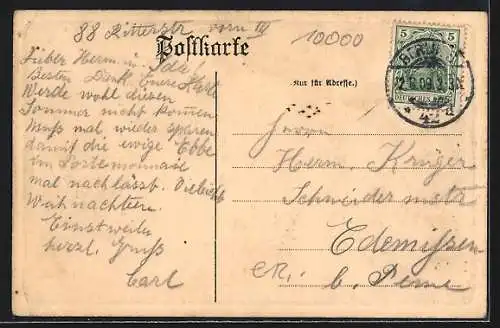 88 Ritterstr vorn III
10000
Postkarte
Lieber Herm. u. Ida!
Besten Dank Eurer Karte
Werde wohl diesen
Sommer nicht kommen
Muß mal wieder sparen
damit die ewige Ebbe
im Portemonnaie
mal nachlässt. Vieleicht
Weihnachten.
Einstweilen
herzl. Gruß
Carl
(Nur für Adresse.)
5 5
DEUTSCHES
42
Herrn
Herm. Krüger
Schneidermstr
Edemissen
b. Peine